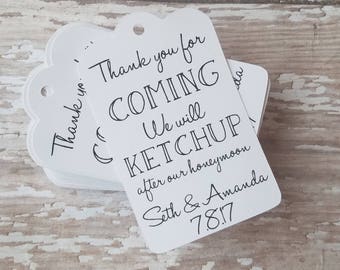 Thank you for
COMING
We will
KETCHUP
after our honeymoon
Seth & Amanda
7.8.17
Thank you